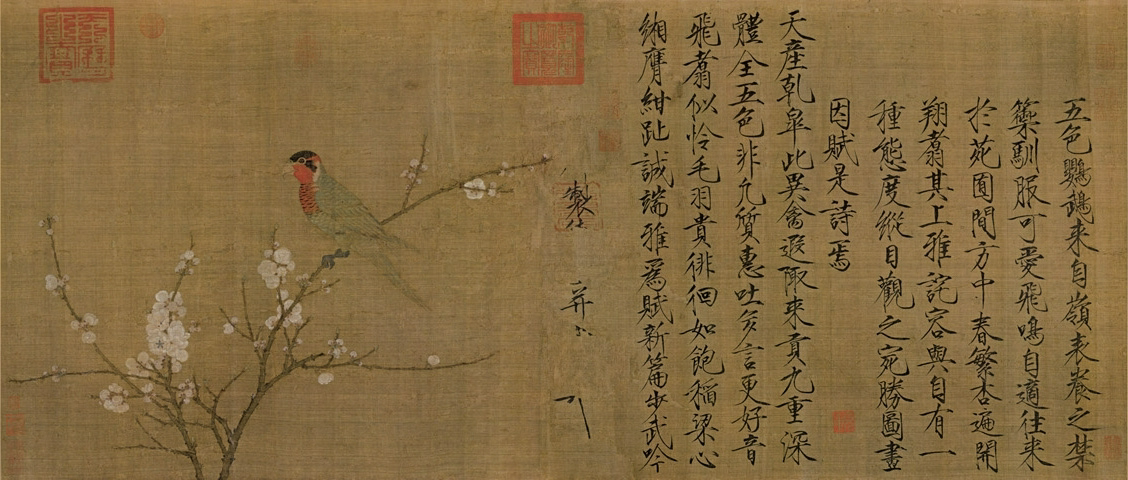 五色鸚鵡来自嶺表養之禁
籞馴服可愛飛鳴自適往来
於苑囿間方中春繁杏遍開
翔翥其上雅詫容與自有一
種態度縱目觀之宛勝圖畫
因賦是詩焉
天產乾皋此異禽遐陬来貢九重深
體全五色非凡質惠吐多言更好音
飛翥似怜毛羽貴徘徊如飽稻粱心
緗膺紺趾誠端雅爲賦新篇步武吟
製
并